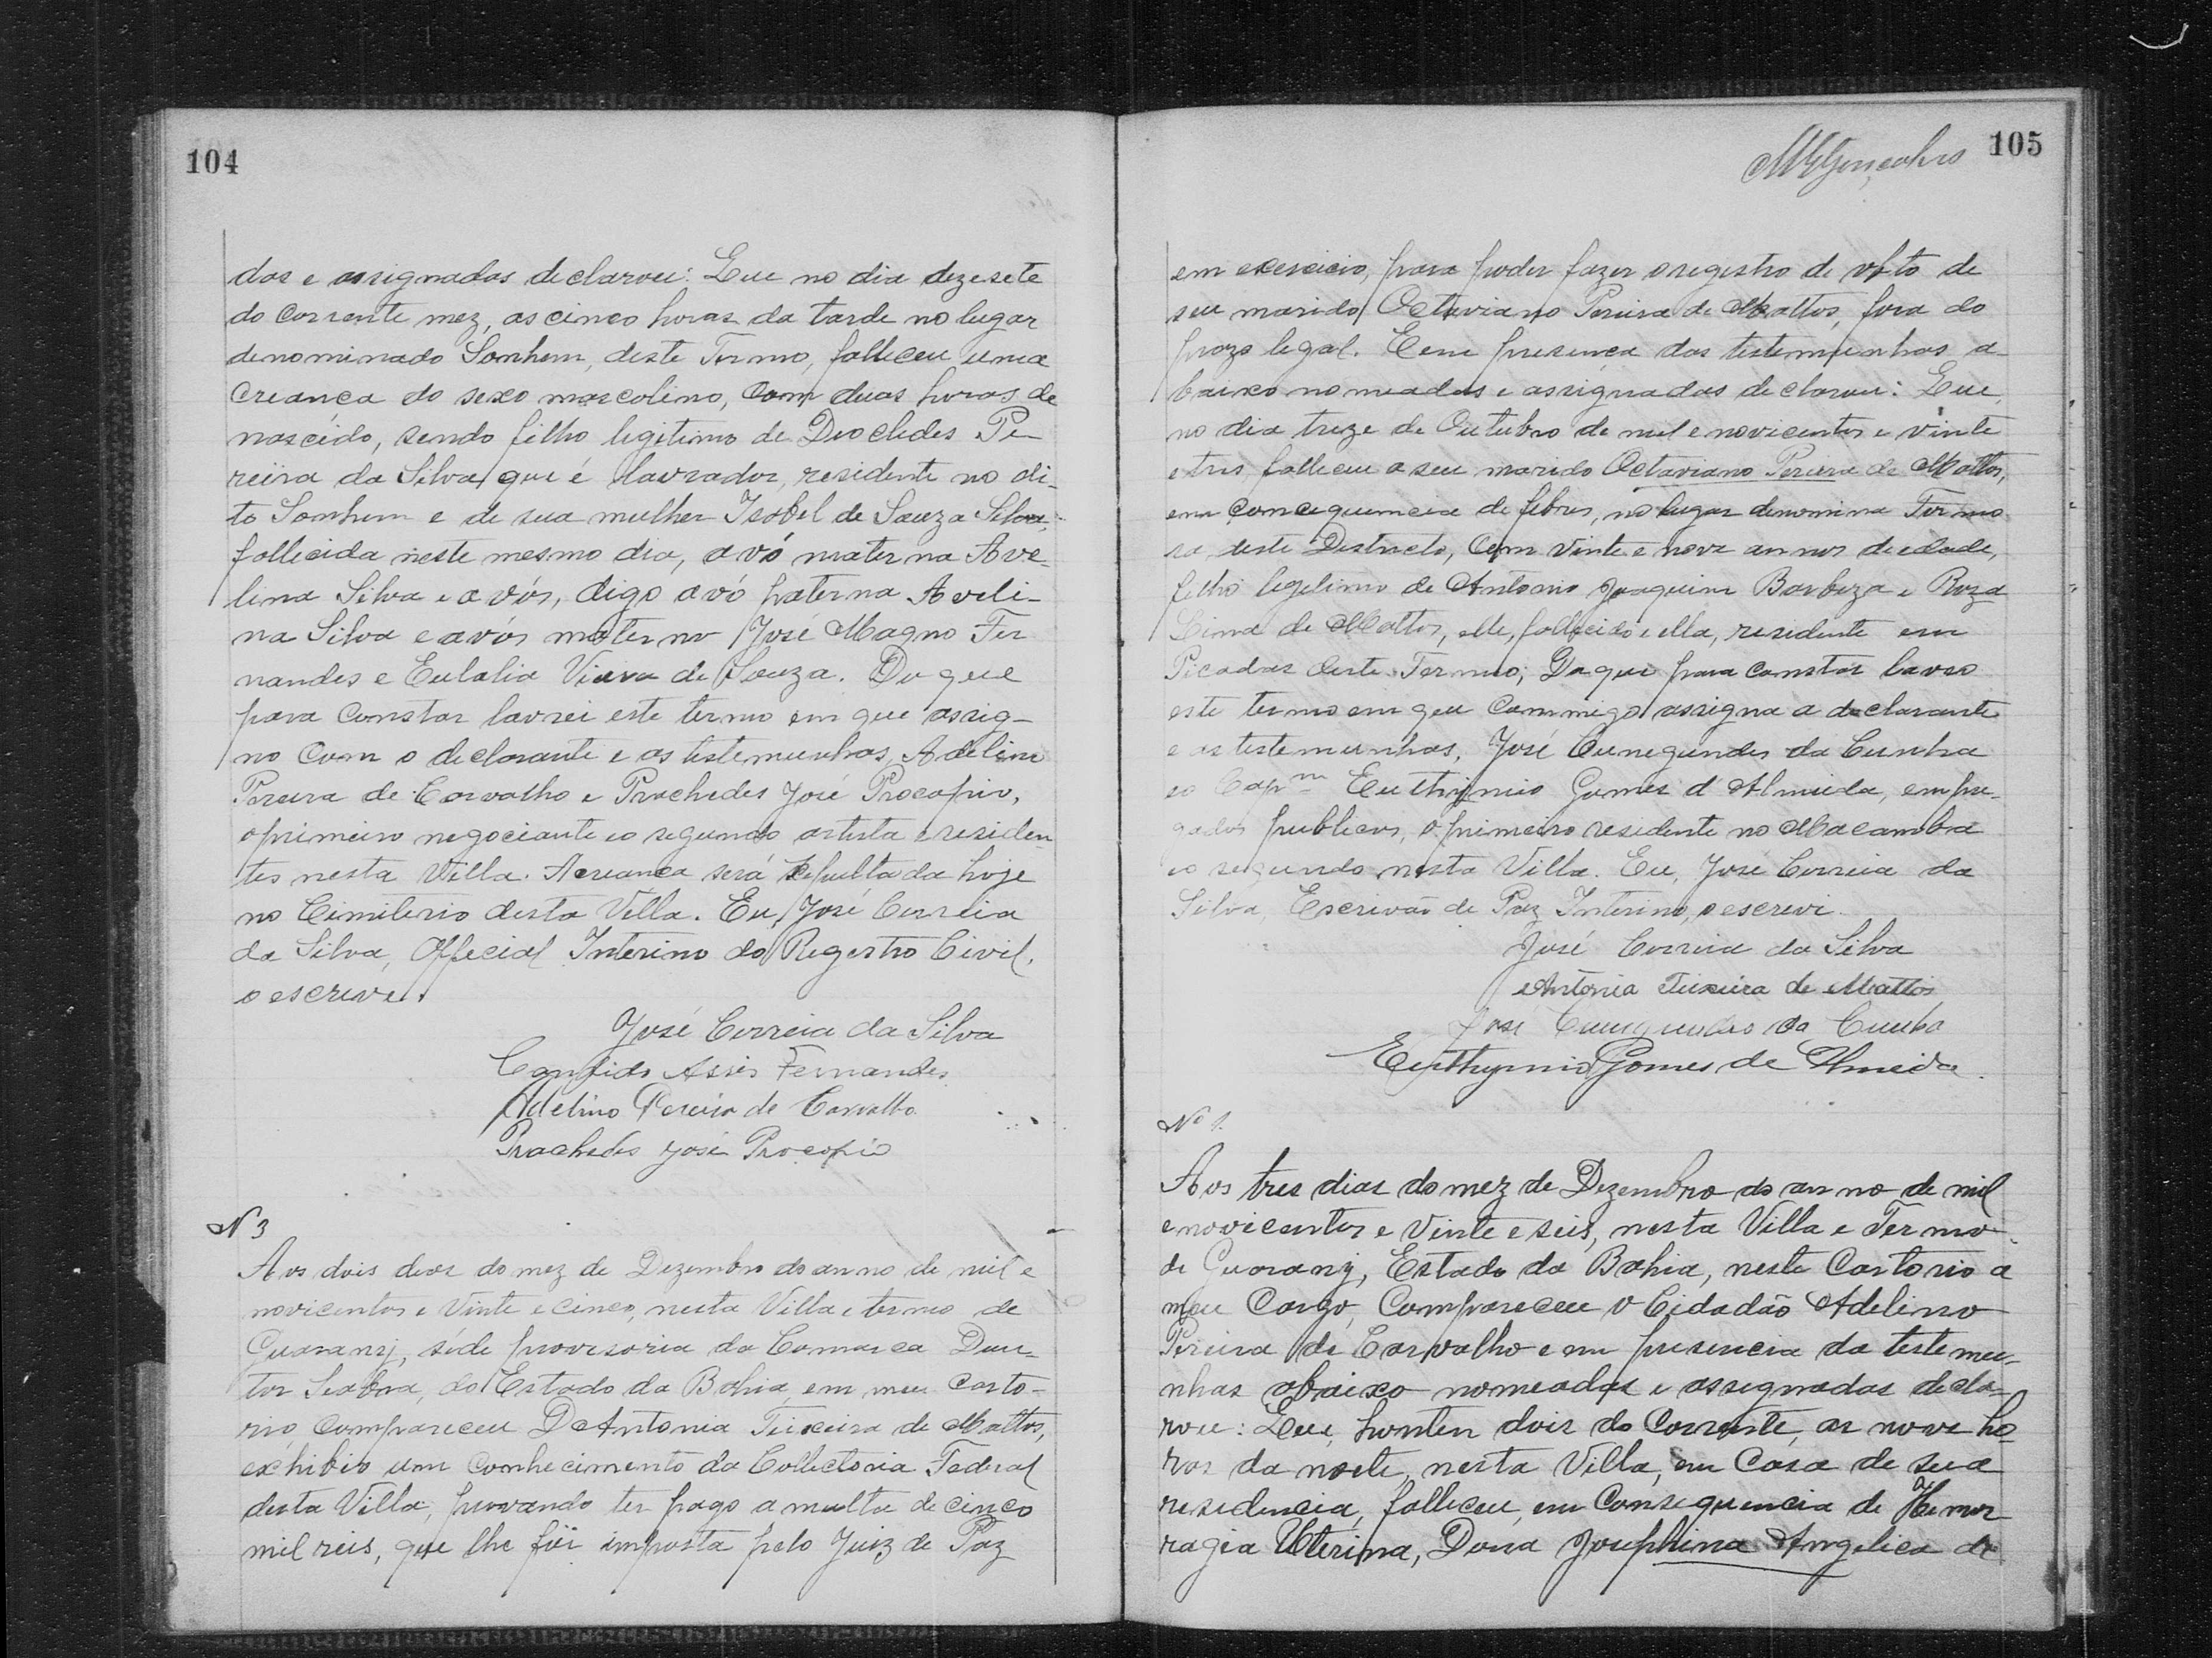 104
das e assignadas declarou: Que no dia dezesete
do corrente mez, as cinco horas da tarde no lugar
denominado Sonhem, deste Termo, falleceu uma
creança do sexo mascolino, com duas horas de
nascido, sendo filho legitimo de Deocledes Pe-
reira da Silva que é lavrador, residente no di-
to Sonhem e de sua mulher Isabel de Souza Silva,
fallecida neste mesmo dia, avó materna Ave-
lina Silva e avós, digo avó paterna Aveli-
na Silva e avós materno José Magno Fer
nandes e Eulalia Vieira de Souza. Do que
para constar lavrei este termo em que assig-
no com o declarante e as testemunhas, Adelino
Pereira de Carvalho e Prachedes José Procopio,
o primeiro negociante eo segundo artista e residen
tes nesta Villa. A creança será sepultada hoje
no Cimiterio desta Villa. Eu José Correia
da Silva, Official Interino do Registro Civil,
o escreve.
José Correia da Silva
Candido Assis Fernandes
Adelino Pereira de Carvalho
Prachedes José Procopio
N 3
Aos dois dias do mez de Dezembro do anno de mil e
novicentos e vinte e cinco, nesta Villa e termo de
Guarany, séde provisoria da Comarca Dou-
tor Seabra, do Estado da Bahia em meu Carto-
rio compareceu D Antonia Teixeira de Mattos,
exhibio um conhecimento da Collectoria Federal
desta Villa, provando ter pago a multa de cinco
mil reis, que lhe foi imposta pelo Juiz de Paz
105
em exercicio, para poder fazer o registro de obto de
seu marido Octaviano Pereira de Mattos, fora do
prazo legal. E em presença das testemunhas a-
baixo nomeadas e assignadas declarou: Que,
no dia treze de Outubro de mil e novicentos e vinte
e tres falleceu o seu marido Octaviano Pereira de Mattos,
em concequencia de febres, no lugar denomina Formo
sa, deste Districto, com vinte e nove annos de edade,
filho legitimo de Antonio Joaquim Barboza e Roza
Lima de Mattos, elle, fallecido e ella, residente em
Picadas deste Termo; Do que para constar lavro
este termo em que commigo assigna a declarante
e as testemunhas, José Cunegundes da Cunha
eo Capm Euthymio Gomes d'Almeida, empre-
gados publicos, o primeiro residente no Macambra
eo segundo nesta Villa. Eu, José Correia da
Silva, Escrivão de Paz Interino, o escrevi.
José Correia da Silva
Antonia Teixeira de Mattos
José Cunegundes da Cunha
Euthymio Gomes de Almeida.
No 1.
Aos tres dias do mez de Dezembro do anno de mil
e novicentos e vinte e seis, nesta Villa e Termo
de Guarany, Estado da Bahia, neste Cartorio a
meu Cargo, Compareceu o Cidadão Adelino
Pereira de Carvalho e em presencia da testemu-
nhas abaixo nomeadas e assignadas decla-
rou: Que, honten dois do Corrente, as nove ho
ras da noite, nesta Villa, em Casa de sua
residencia, falleceu, em Consequencia de Hemor
ragia Uterina, Dona Josephina Angelica de